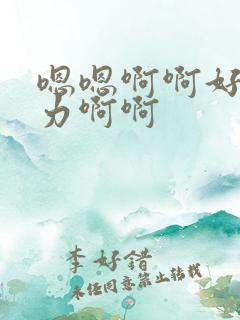 嗯嗯啊啊好
力啊啊
李好錯
未经同意禁止转载